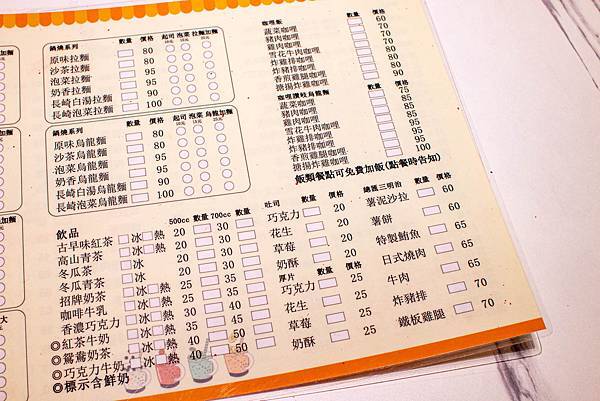 鍋燒系列 數量 價格 起司 泡菜 拉麵加麵
原味拉麵 80
沙茶拉麵 80
泡菜拉麵 95
奶香拉麵 95
長崎白湯拉麵 90
長崎泡菜拉麵 100
鍋燒系列 數量 價格 起司 泡菜 烏龍加麵
原味烏龍麵 80
沙茶烏龍麵 80
泡菜烏龍麵 95
奶香烏龍麵 95
長崎白湯烏龍麵 90
長崎泡菜烏龍麵 100
咖哩飯 數量 價格
蔬菜咖哩 60
豬肉咖哩 70
雞肉咖哩 70
雪花牛肉咖哩 80
炸雞排咖哩 80
炸豬排咖哩 80
香煎雞腿咖哩 80
搪揚炸雞咖哩 90
咖哩讚岐烏龍麵 數量 價格
蔬菜咖哩 75
豬肉咖哩 85
雞肉咖哩 85
雪花牛肉咖哩 95
炸雞排咖哩 95
炸豬排咖哩 95
香煎雞腿咖哩 95
搪揚炸雞咖哩 100
飯類餐點可免費加飯(點餐時告知)
飲品 500cc 數量 700cc 數量
古早味紅茶 冰 熱 20 30
高山青茶 冰 熱 20 30
冬瓜茶 冰 20 30
冬瓜青茶 冰 20 30
招牌奶茶 冰 熱 25 35
咖啡牛乳 冰 熱 25 35
香濃巧克力 冰 熱 25 35
◎紅茶牛奶 冰 熱 35 45
◎鴛鴦奶茶 冰 熱 35 45
◎巧克力牛奶 冰 熱 40 50
◎標示含鮮奶
吐司 數量 價格
巧克力 20
花生 20
草莓 20
奶酥 20
厚片 數量 價格
巧克力 25
花生 25
草莓 25
奶酥 25
總匯三明治 數量 價格
薯泥沙拉 60
薯餅 60
特製鮪魚 65
日式燒肉 65
牛肉 65
炸豬排 70
鐵板雞腿 70